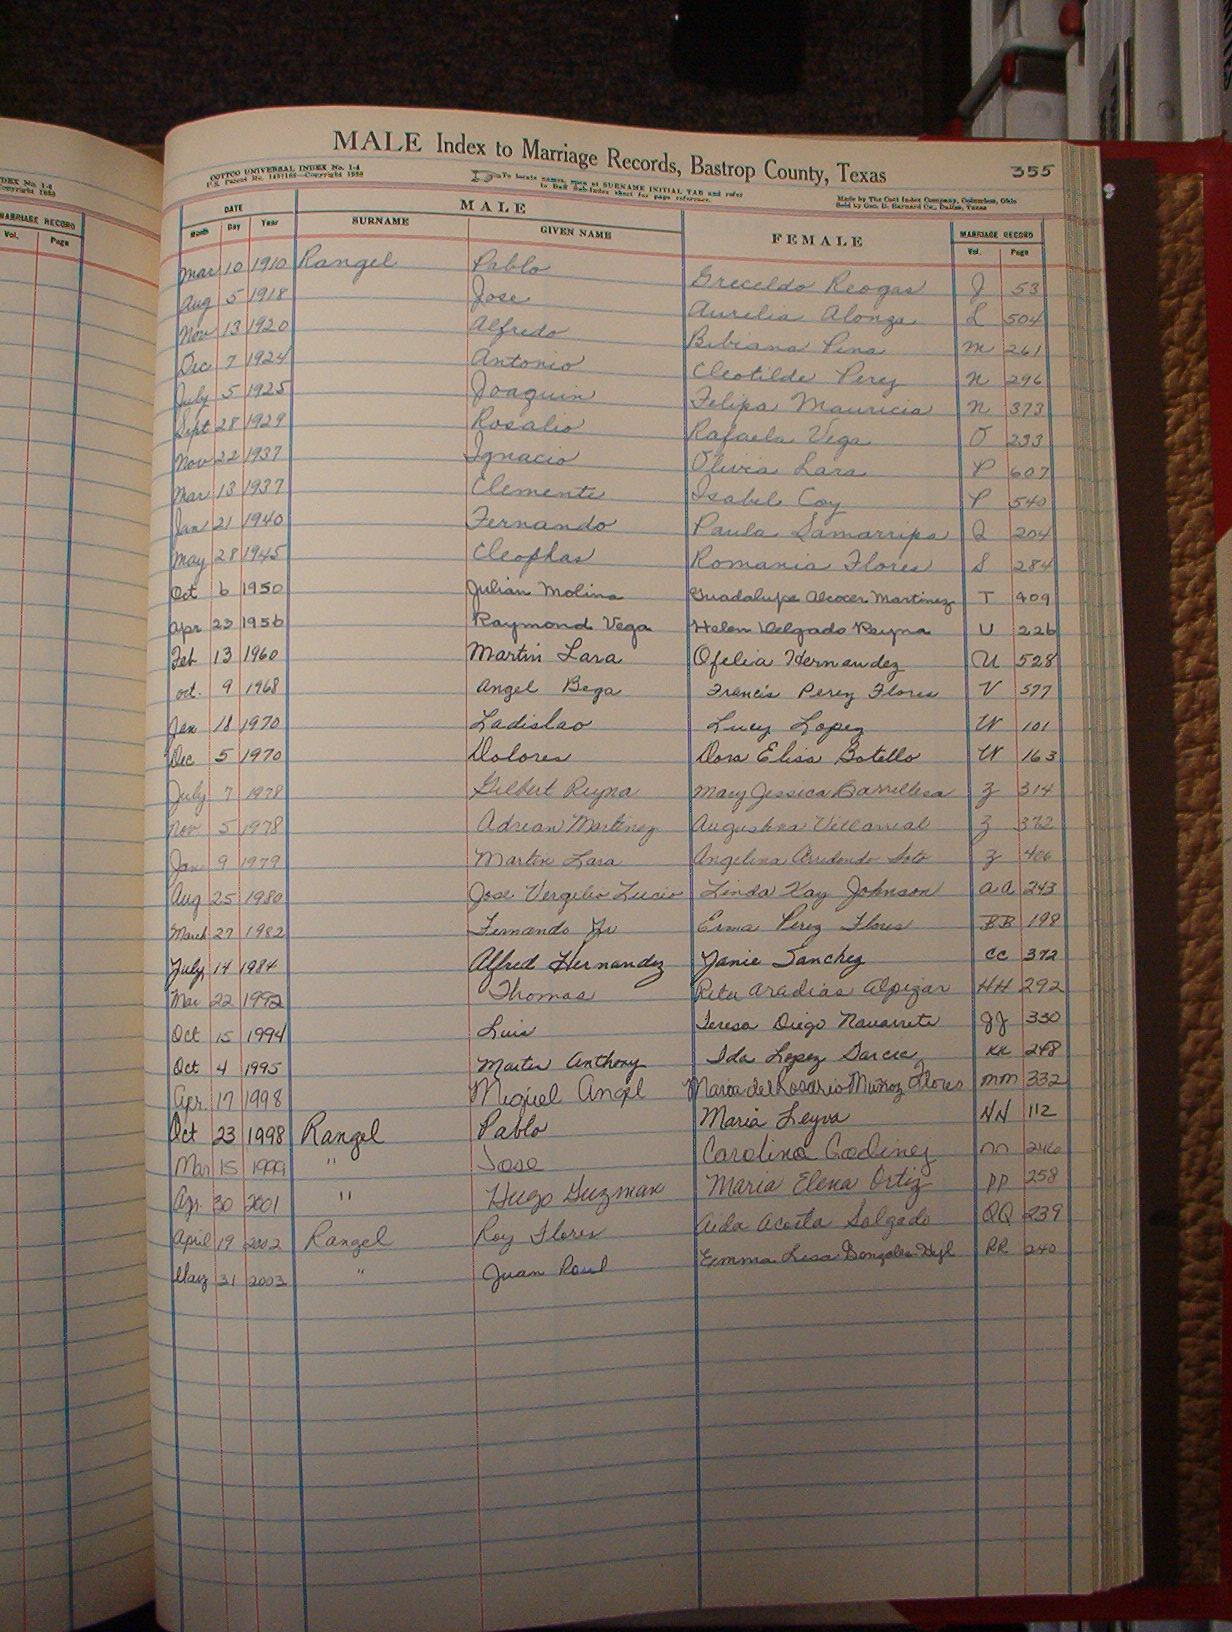 MALE Index to Marriage Records, Bastrop County, Texas 355
COTTCO UNIVERSAL INDEX No. 1-4
U.S. Patent No. Copyright
To locate names, open at SURNAME INITIAL TAB and refer
to Sub-Index sheet for page reference.
Made by The Cott Index Company, Columbus, Ohio
Sold by Geo. D. Barnard Co., Dallas, Texas
MARRIAGE RECORD
Vol. Page
DATE MALE FEMALE MARRIAGE RECORD
Month Day Year SURNAME GIVEN NAME Vol. Page
Mar 10 1910 Rangel Pablo Greceldo Reogas J 53
Aug 5 1918 Jose Aurelia Alonza L 504
Nov 13 1920 Alfredo Bibiana Pena M 261
Dec 7 1924 Antonio Cleotilde Perez N 296
July 5 1925 Joaquin Felipa Mauricia N 373
Sept 28 1929 Rosalio Rafaela Vega O 233
Nov 22 1937 Ignacio Olivia Lara P 607
Mar 13 1937 Clemente Isabel Coy P 540
Jan 21 1940 Fernando Paula Samarripa Q 204
May 28 1945 Cleophas Romania Flores S 284
Oct 6 1950 Julian Molina Guadalupe Alcocer Martinez T 409
Apr 23 1956 Raymond Vega Helen Delgado Reyna U 226
Feb 13 1960 Martin Lara Ofelia Hernandez U 528
Oct. 9 1968 Angel Bega Francis Perez Flores V 577
Jan 18 1970 Ladislao Lucy Lopez W 101
Dec 5 1970 Dolores Dora Elisa Botello W 163
July 7 1978 Gilbert Reyna Mary Jessica Barrillesa Z 314
Nov 5 1978 Adrian Martinez Augustina Villarreal Z 372
Jan 9 1979 Martin Lara Angelina Arredondo Soto Z 406
Aug 25 1980 Jose Vergilio Lucio Linda Kay Johnson AA 243
March 27 1982 Fernando Jr Erma Perez Flores BB 198
July 14 1984 Alfred Hernandez Janie Sanchez CC 372
Mar 22 1992 Thomas Rita Aradias Alpizar HH 292
Oct 15 1994 Luis Teresa Diego Navarrete JJ 330
Oct 4 1995 Martin Anthony Ida Lopez Garcia KK 248
Apr. 17 1998 Miguel Angel Maria del Rosario Muñoz Flores MM 332
Oct 23 1998 Rangel Pablo Maria Leyva NN 112
Mar 15 1999 " Jose Carolina Godinez NN 246
Apr. 30 2001 " Hugo Guzman Maria Elena Ortiz PP 258
April 19 2002 Rangel Roy Flores Aida Acosta Salgado QQ 239
May 31 2003 " Juan Raul Emma Lisa Gonzales RR 240